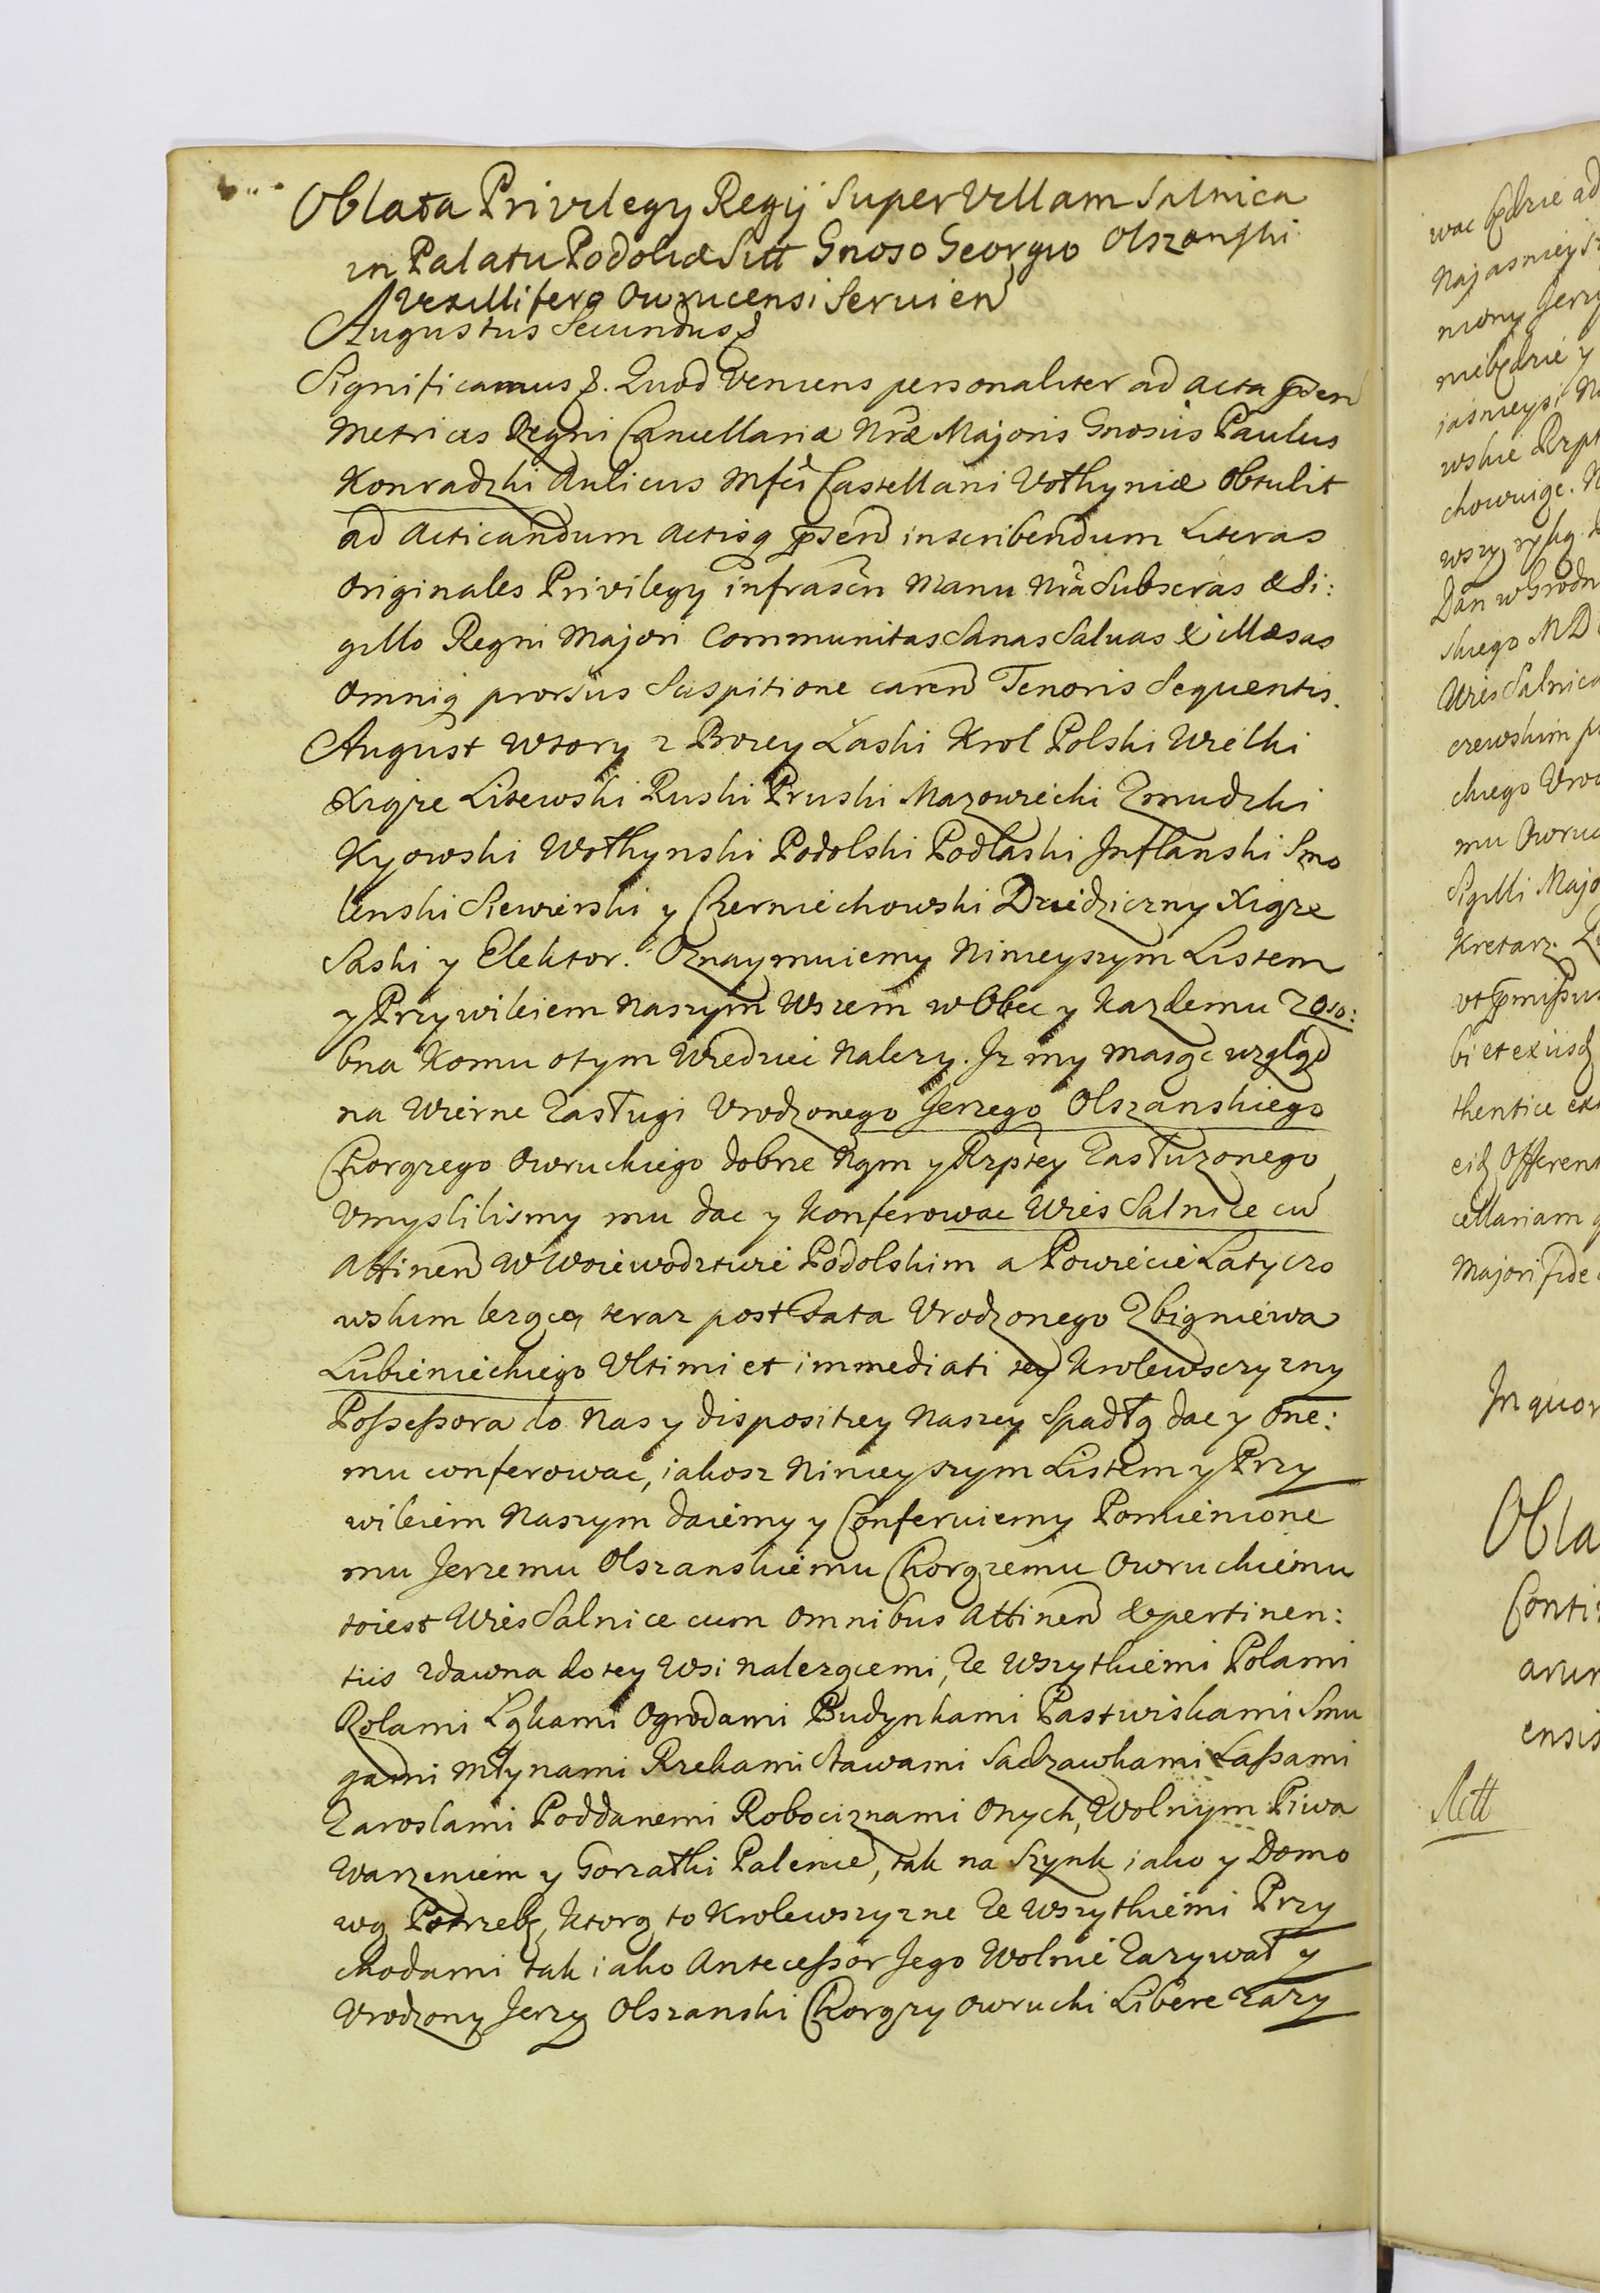 Oblata Privilegy Regij Super Villam Salnica
in Palatu Podoliæ Sitt Gnoso Georgio Olszanski
Vexillifero Owrucensi Seruien
Augustus Secundus
Significamus &. Quod Veniens personaliter ad acta psen
Metrices Regni Cancellariæ Nræ Majoris Gnosus Paulus
Konradzki Aulicus Mfci Castellani Vołhyniæ Obtulit
ad Acticandum Actisq psen inscribendum Literas
Originales Privilegy infrascn Manu Nra Subscras & Si:
gillo Regni Majori Communitas Sanas Saluas & illæsas
Omniq prorsus Suspitione caren Tenoris Sequentis.
August Wtory z Bozey Łaski Krol Polski Wielki
Xiąze Litewski Ruski Pruski Mazowiecki Zmudzki
Kyowski Wołhynski Podolski Podlaski Inflanski Smo
lenski Siewierski y Czerniechowski Dziedziczny Xiąze
Saski y Elektor. Oznaymuiemy Ninieyszym Listem
y Przywileiem Naszym Wszem w Obec y Kazdemu Zoso:
bna Komu o tym Wiedziec Nalezy. Iz my maiąc wzgląd
na Wierne Zasługi Vrodzonego Jerzego Olszanskiego
Chorązego Owruckiego dobrze Nąm y Rzptey Zasłuzonego
Vmyslilismy mu dac y Konferowac Wies Salnice cu
Attinen w Woiewodztwie Podolskim a Powiecie Latyczo
wskim lezącą teraz post Fata Vrodzonego Zbigniewa
Lubienieckiego Vltimi et immediati tey Krolewsczyzny
Possessora do Nas y dispositiey Naszey Spadłą dac y One:
mu conferowac, iakosz Ninieyszym Listem y Przy
wileiem Naszym daiemy y Conferuiemy Pomienione
mu Jerzemu Olszanskiemu Chorązemu Owruckiemu
toiest Wies Salnice cum Omnibus Attinen & pertinen:
tiis zdawna do tey Wsi nalezącemi, Ze Wszytkiemi Polami
Rolami Łąkami Ogrodami Budynkami Pastwiskami Smu
gami Młynami Rzekami Stawami Sadzawkami Lassami
Zaroslami Poddanemi Robociznami Onych, Wolnym Piwa
Warzeniem y Gorzałki Palenie, tak na Szynk iako y Domo
wą Potrzebę, Ktorą to Krolewszyzne Ze Wszytkiemi Przy
chodami tak iako Antecessor Jego Wolnie Zazywał y
Vrodzony Jerzy Olszanski Chorązy Owrucki Libere Zazy
wac będzie ad
Najasnieysz
niony Jerzy
niebędzie y
iasnieys
wskie Rzpt
chowuiąc. N
Dan w Grodn
skiego MD
Wies Salnica
czewskim p
ckiego Vro
mu Owruc
Sigilli Majo
Kretarz.
bi et exiis
thentice ex
eid Offerent
cellariam
Majori fide
In quor
Obla
Conti
arum
ensis
Rett